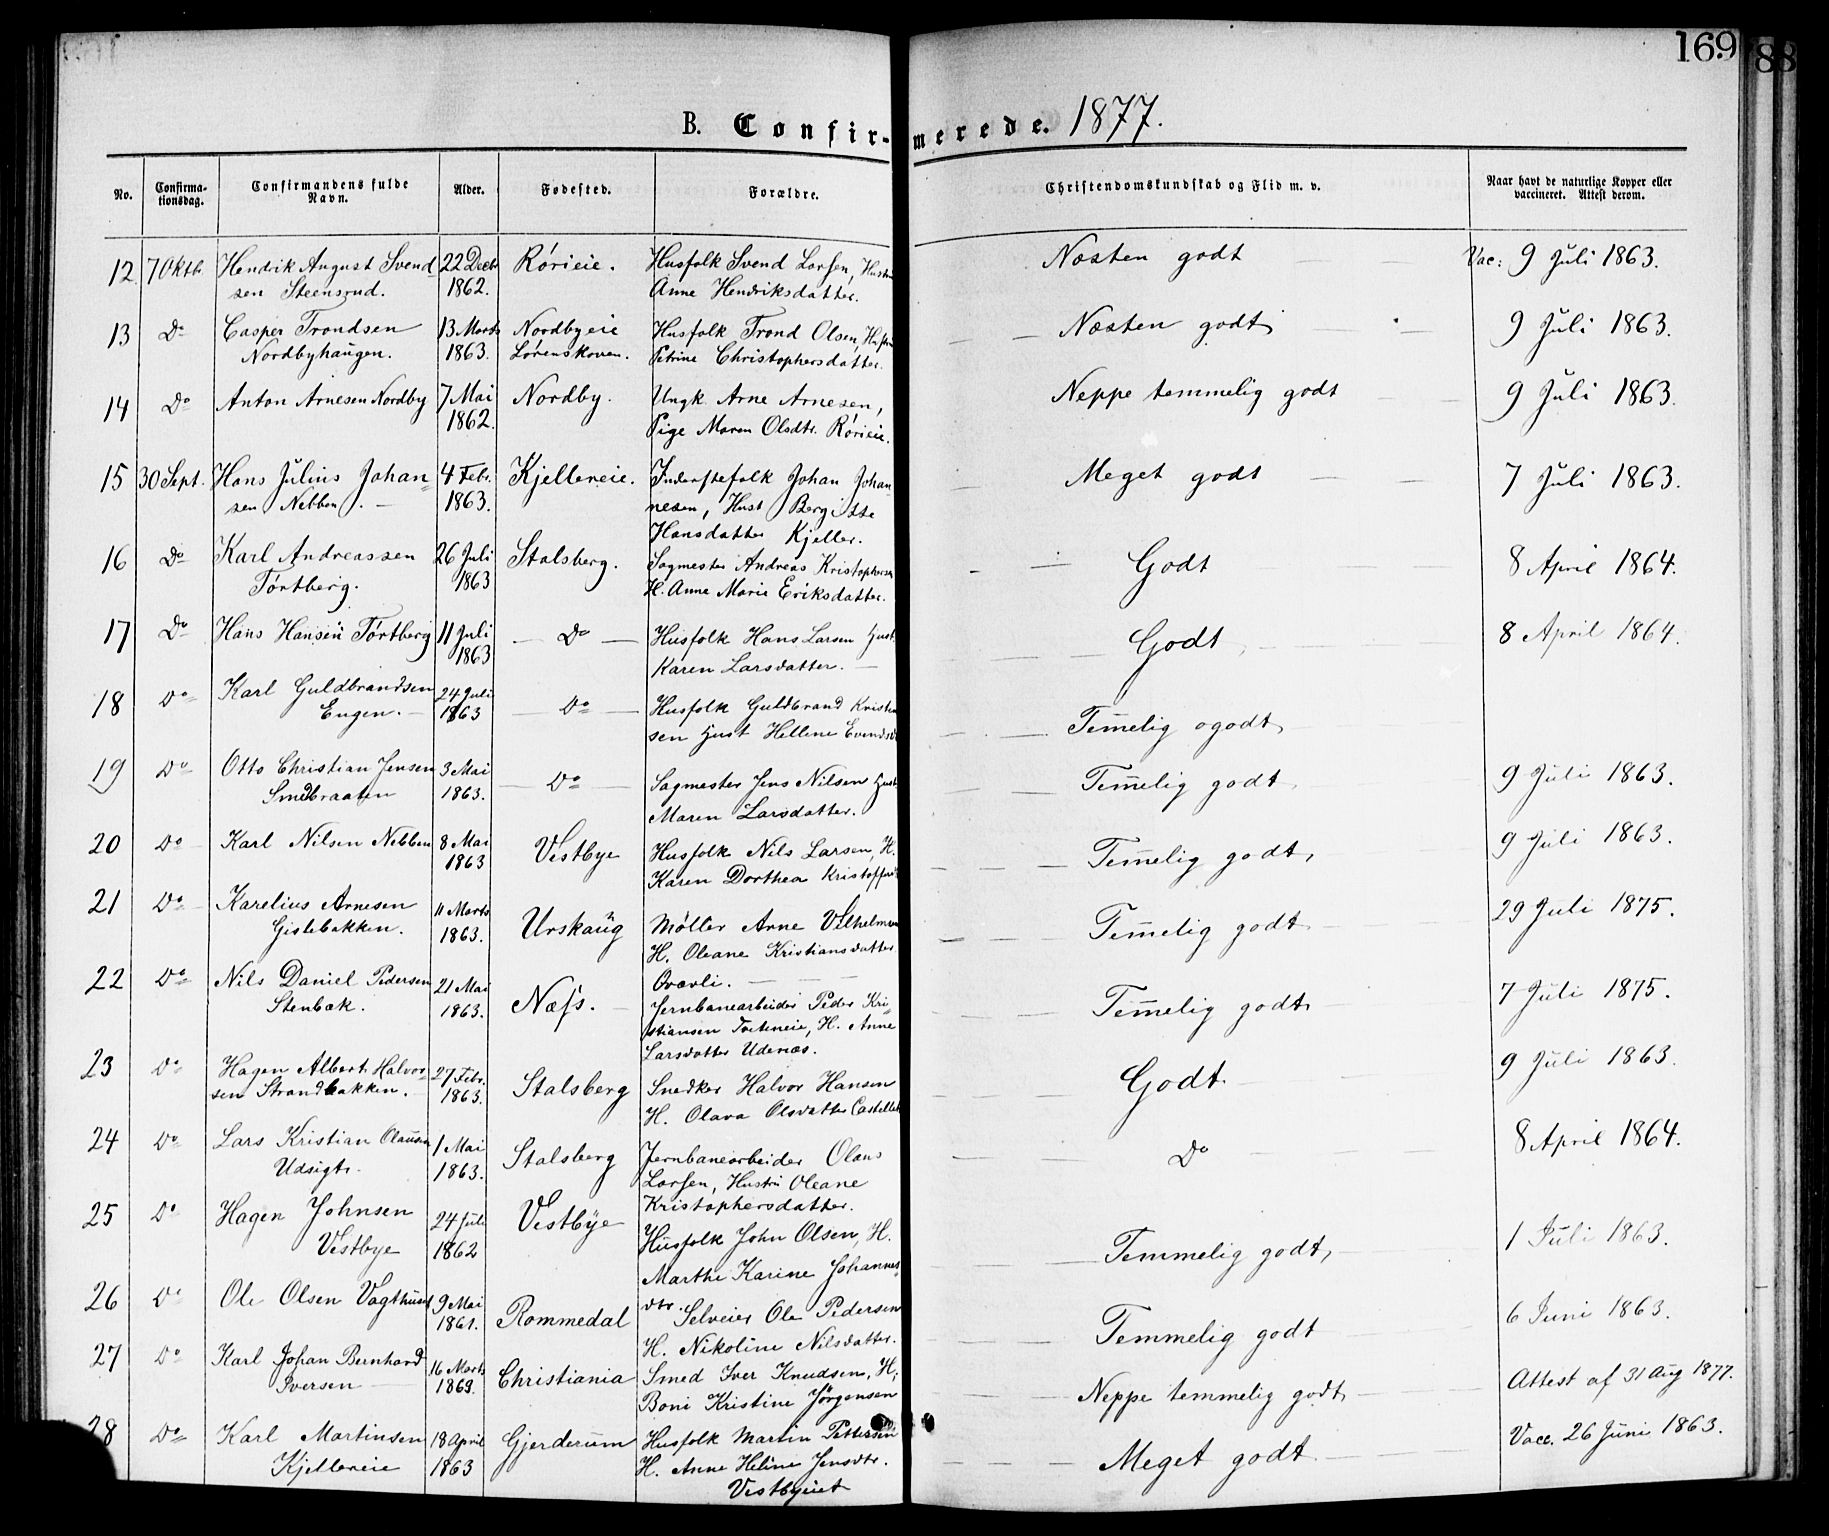 169
88
B. Confir-merede. 1877.
No.
Confirma-
tionsdag.
Confirmandens fulde
Navn.
Alder.
Fødested.
Forældre.
Christendomskundskab og Flid m. v.
Naar havt de naturlige Kopper eller
vaccineret. Attest derom.
12 7 Oktb. Hendrik August Svend 22 Decb. Rörieie. Husfolk Svend Larsen, Hustru Næsten godt Vac: 9 Juli 1863.
sen Steensrud. 1862. Anne Hendriksdatter.
13 Do Casper Trondsen 13 Marts Nordbyeie Husfolk Trond Olsen, Næsten godt 9 Juli 1863.
Nordbyhaugen. 1863. Lørenskoven. Petrine Christophersdatter.
14 Do Anton Arnesen Nordby 7 Mai Nordby. Ungk. Arne Arnesen, Neppe temmelig godt 9 Juli 1863.
1862. Pige Maren Olsdtr. Rörieie.
15 30 Sept. Hans Julius Johan= 4 Febr. Kjellereie. Inderstefolk Johan Johan- Meget godt 7 Juli 1863.
sen Nebben. 1863. nesen, Hust Bergitte
Hansdatter Kjeller.
16 Do Karl Andreassen 26 Juli Stalsberg. Sagmester Andreas Kristophersen Godt 8 April 1864.
Törtberg. 1863 H. Anne Marie Eriksdatter.
17 Do Hans Hansen Törtberg 11 Juli Do Husfolk Hans Larsen Hust. Godt 8 April 1864.
1863 Karen Larsdatter.
18 Do Karl Guldbrandsen 24 Juli Do Husfolk Guldbrand Kristian
Engen. 1863 sen Hust Hellene Evendsd Tem̄elig godt
19 Do Otto Christian Jensen 3 Mai Do Sagmester Jens Nilsen Hust. Tem̄elig godt 9 Juli 1863.
Smedbraaten 1863. Maren Larsdatter.
20 Do Karl Nilsen Nebben 8 Mai Vestbye Husfolk Nils Larsen, H. Tem̄elig godt, 9 Juli 1863.
1863 Karen Dorthea Kristoffers
21 Do Karelius Arnesen 11 Marts Urskaug Møller Arne Vilhelmsen Tem̄elig godt 29 Juli 1875.
Gislebakken. 1863. H. Oleane Kristiansdatter
Ovavli.
22 Do Nils Daniel Pedersen 21 Mai Næss. Jernbanearbeider Peder Kri= Tem̄elig godt 7 Juli 1875.
Stenbæk. 1863. stiansen Tveteneie, H. Anne
Larsdatter Udenæs.
23 Do Hagen Albert Halvor= 27 Febr. Stalsberg Snedker Halvor Hansen Godt. 9 Juli 1863.
sen Strandbakken. 1863. H. Olava Olsdatter Castellet
24 Do Lars Kristian Olausen 1 Mai Stalsberg Jernbanearbeider Olaus Do 8 April 1864.
Udsigts. 1863. Larsen, Hustru Oleane
Kristophersdatter.
25 Do Hagen Johnsen 24 Juli Vestbye Husfolk John Olsen, H. Temmelig godt, 1 Juli 1863.
Vestbye 1862 Marthe Karine Johannes
dtr.
26 Do Ole Olsen Vagthuset 9 Mai Rommedal Selveier Ole Pedersen Temmelig godt 6 Juni 1863.
1861. H. Nikoline Nilsdatter.
27 Do Karl Johan Bernhard 16 Marts Christiania Smed Iver Knudsen, H, Neppe temmelig godt Attest af 31 Aug 1877.
Iversen 1863. Boni Kristine Jørgensen
28 Do Karl Martinsen 18 April Gjerderum Husfolk Martin Pettersen Meget godt Vacc. 26 Juni 1863.
Kjellereie 1863 H. Anne Heline Jensdtr.
Vestbyeiet